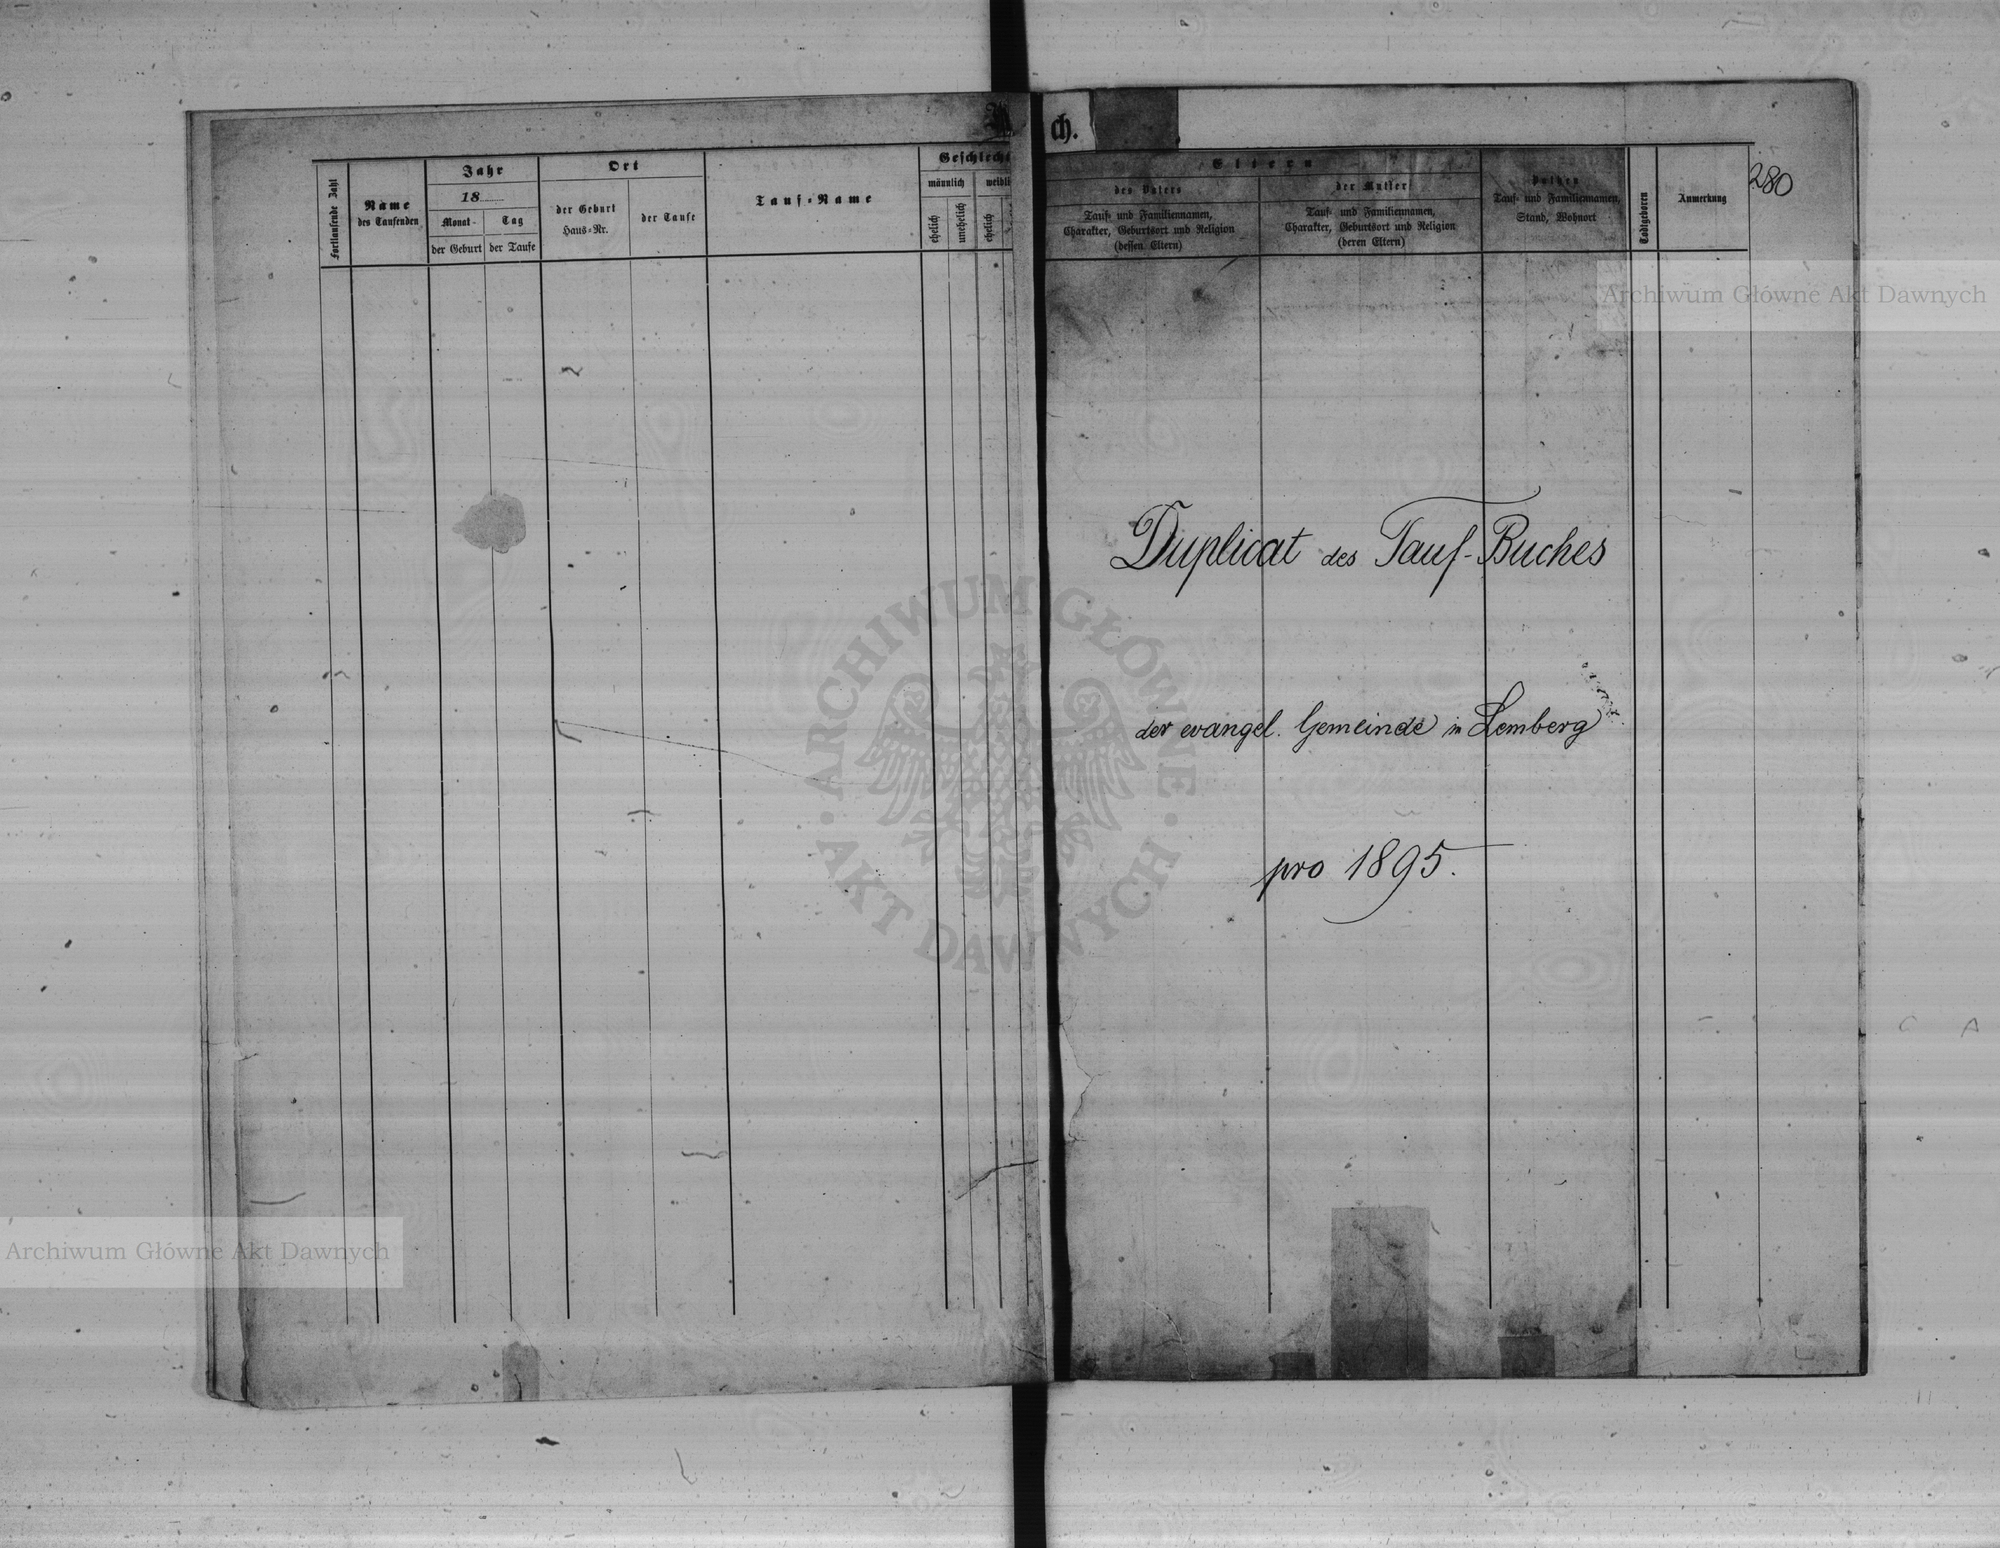 ch.
280
Fortlaufende Zahl
Name
des Taufenden
Jahr
18
Monat
Tag
der Geburt
der Taufe
Ort
der Geburt
Haus-Nr.
der Taufe
Tauf-Name
Geschlech
männlich
weibli
ehelich
unehelich
ehelich
Eltern
des Vaters
Tauf- und Familiennamen,
Charakter, Geburtsort und Religion
(dessen Eltern)
der Mutter
Tauf- und Familiennamen,
Charakter, Geburtsort und Religion
(deren Eltern)
Pathen
Tauf- und Familiennamen,
Stand, Wohnort
Todtgeboren
Anmerkung
Archiwum Główne Akt Dawnych
Duplicat des Tauf-Buches
der evangel. Gemeinde in Lemberg
pro 1895.
ARCHIWUM GŁÓWNE
AKT DAWNYCH
Archiwum Główne Akt Dawnych